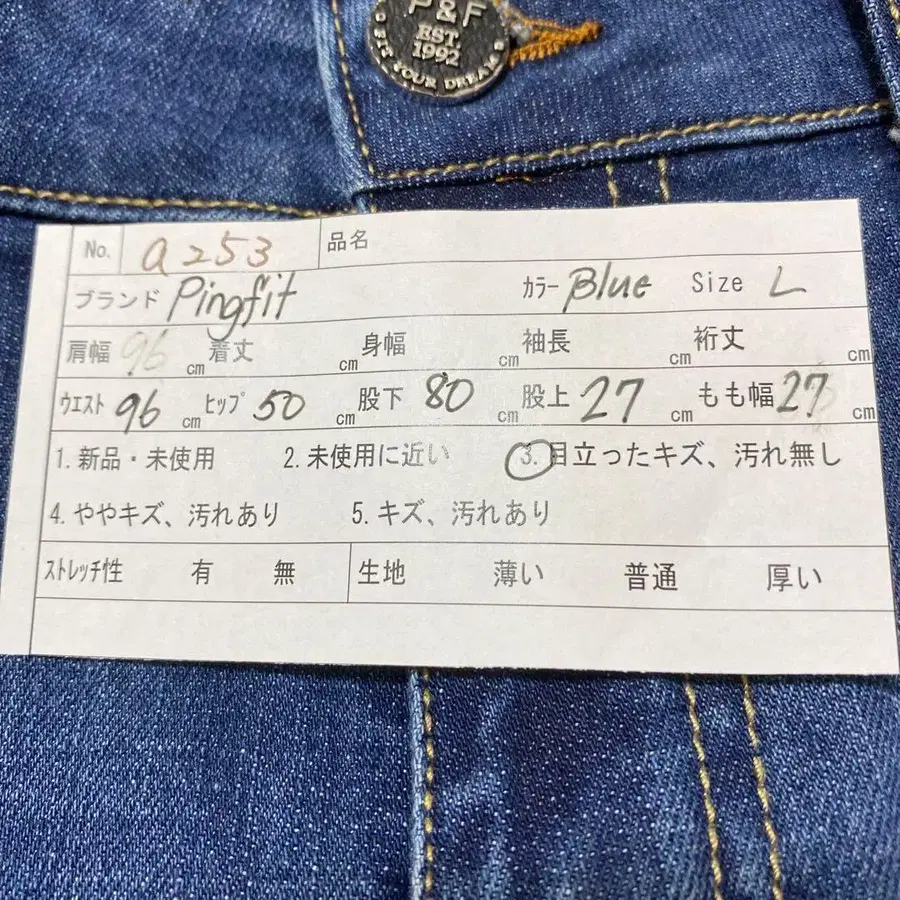 P & F
EST.
1992
FIT YOUR DREAM
No. a253 品名
ブランド Pingfit カラー Blue Size L
肩幅 96 cm 着丈 cm 身幅 cm 袖長 cm 裄丈 cm
ウエスト 96 cm ヒップ 50 cm 股下 80 cm 股上 27 cm もも幅 27 cm
1. 新品・未使用 2. 未使用に近い 3. 目立ったキズ、汚れ無し
4. ややキズ、汚れあり 5. キズ、汚れあり
ストレッチ性 有 無 生地 薄い 普通 厚い